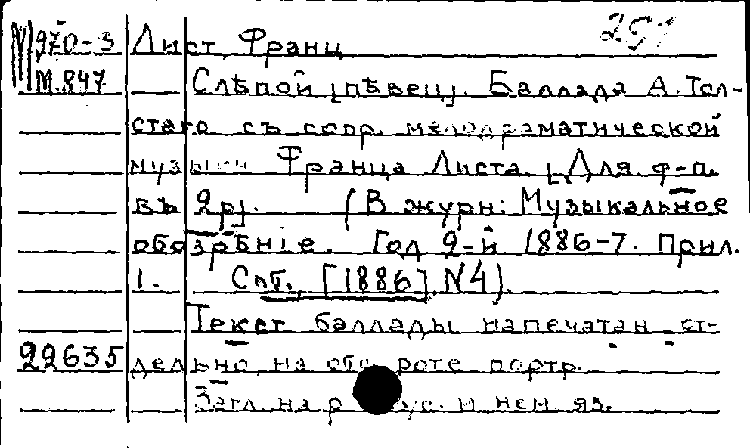 М970-3 Лист, Франц
М.847 Слѣпой [пѣвец]. Баллада А. Тол-
стаго съ сопр. мелодраматической
музыки Франца Листа. [Для ф-п.
въ 2р]. (В журн: Музыкальное
обозрѣніе. Год 2-й 1886-7. Прил.
1. Спб., [1886] N4).
Текст баллады напечатан от-
22635 дельно на обороте партр.
Загл. на р ус. и нем яз.